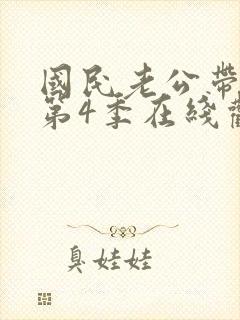 國民老公帶
第4季在綫
臭娃娃